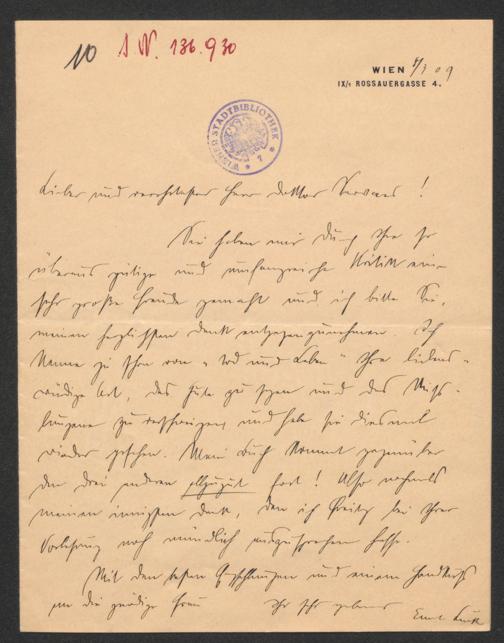 10 I.N. 136.930
WIEN 4/3 09
IX/1 ROSSAUERGASSE 4.
WIENER STADTBIBLIOTHEK
Lieber und verehrtester Herr Doktor Servaes!
Sie haben mir durch Ihre so
überaus gütige und umfangreiche Kritik eine
sehr große Freude gemacht und ich bitte Sie,
meinen herzlichsten Dank entgegenzunehmen. Ich
kenne ja schon von „Tod und Leben" Ihre liebens-
würdige Art, das Gute zu sagen und das Miss-
lungene zu verschweigen und habe sie diesmal
wieder gesehen. Mein Buch kommt gegenüber
den drei anderen allzugut fort! Also nochmals
meinen innigsten Dank, den ich Freitag bei Ihrer
Vorlesung noch mündlich auszusprechen hoffe.
Mit den besten Empfehlungen und einem Handkuß
an die gnädige Frau Ihr sehr ergebener
Ernst